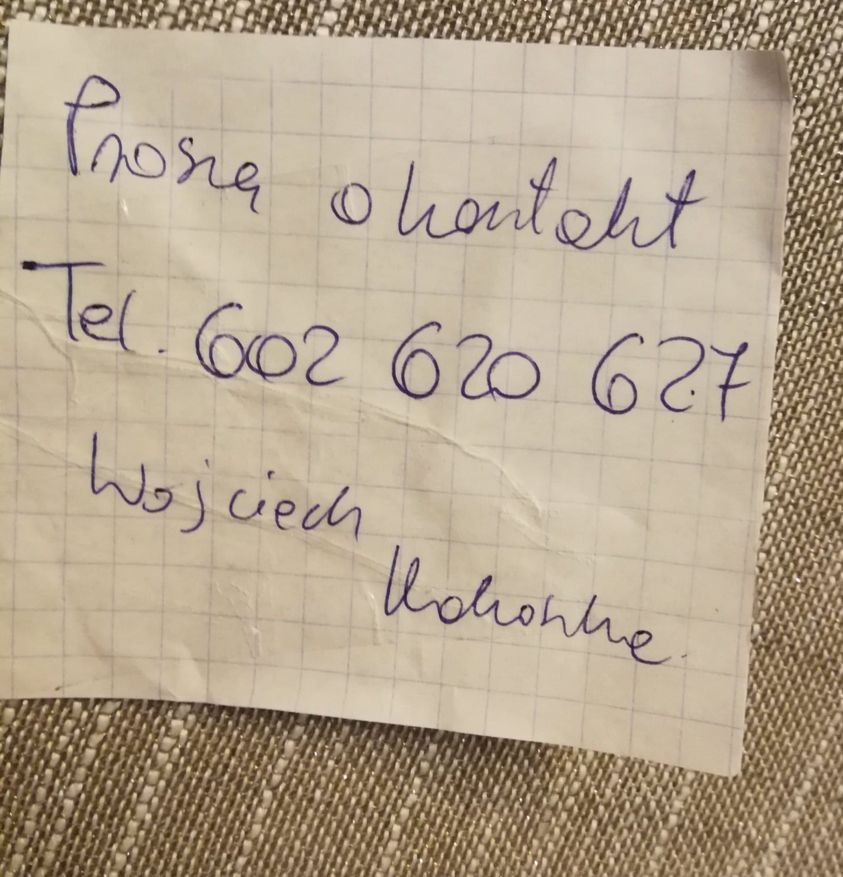 Proszę o kontakt
Tel. 602 620 627
Wojciech